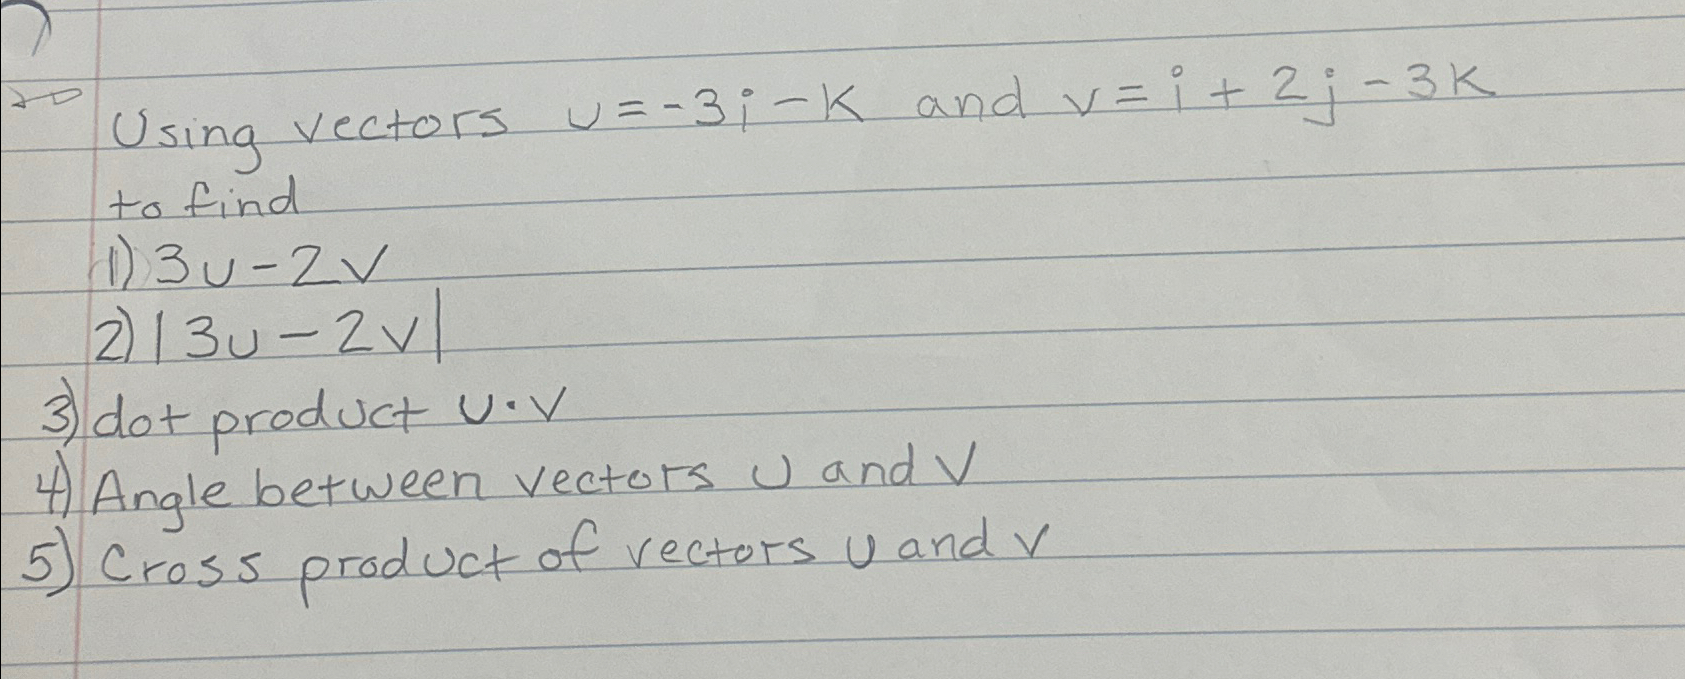 Using vectors u = -3i - k and v = i + 2j - 3k
to find
1) 3u - 2v
2) |3u - 2v|
3) dot product u·v
4) Angle between vectors u and v
5) Cross product of vectors u and v